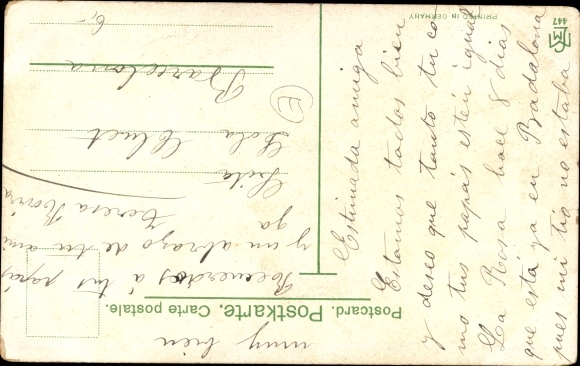 Estimada amiga
Estamos todos bien
y deseo que tanto tu co
mo tus papás esteis igual
La Rosa hace 8 dias
que está ya en Badalona
pues mi tio no estaba
muy bien
Recuerdos á tus papás
y un abrazo de tu ami
ga
Teresa
Postcard. Postkarte. Carte postale.
Srita
Lola Cluet
Barcelona
PRINTED IN GERMANY
447